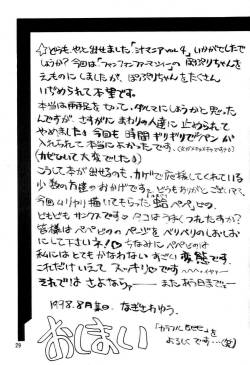 ☆どうも、やっと出せました「汁マニアvol.4」いかがでしたで
しょうか？今回は「ファンファンファーマシィー」のぽぷりちゃんを
えものにしましたが、ぽぷりちゃんをたくさん
いぢめられて本望です。
本当は両手足をなくって、ダルマにしようかと思った
んですが、さすがにまわりの人達に止められて
やめました。今回も時間ギリギリでペンが
入れられて本当によかったです。
(カゼひいて大変でした)
こうして本が出せるのも、かげで応援してくれている
少数の方達のおかげです。どうもありがとございます
今回ムリヤリ描いてもらった蛤ペペとの
ともどもサンクスです タコはうまくつれたすか？
皆様はペペとののページをベリベリのしおしおに
してして下さいネ！ ちなみにペペとのは
私にはとてもかなわないすごい変態です。
これだけいえてスッキリです
それではさよなら〜 また会う日まで
1998.8月 なぎさわゆう。
おしまい
「カラフルBee」を
よろしくです…(笑)
29